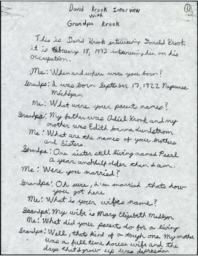 David Krook Interview
with
Grandpa Krook
This is David Krook interviewing Donald Krook
it is February 18, 1992 interviewing him on his
occupation.
Me: When and where were you born?
Grandpa: I was born September 17, 1927, Negaunee
Michigan
Me: What were your parents name?
Grandpa: My father was Adiel Krook and my
mother was Edith Lundstrom
Me: What are the names of your brothers
and Sisters
Grandpa: One sister still living named Pearl
a year and half older then I am.
Me: Were you married?
Grandpa: Oh sure, I was married that's how
you got here.
Me: What is your wife's name?
Grandpa: My wife is Mary Elizabeth
Me: What did your parents do for a living
Grandpa: Well, that kind of a tough one. My mother
was a full time house wife and the
days that I grew up was depression